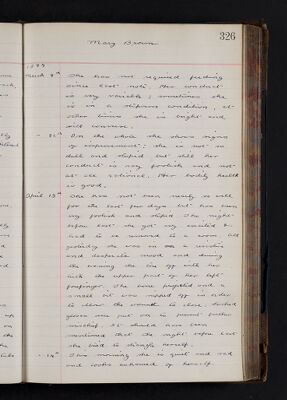 326
Mary Brown
1899
March 9th She has not required feeding
since last note. Her conduct
is very variable; sometimes she
is in a stuporous condition, at
other times she is bright and
will converse.
On the whole she shows signs
of improvement; she is not so
dull and stupid but still her
conduct is very foolish and not
at all rational. Her bodily health
is good.
April 13th She has not been nearly so well
for the last few days but has been
very foolish and stupid. The night
before last she got very excited &
had to be removed to a room. All
yesterday she was in a
and desperate mood and during
the evening she bit off with her
teeth the upper part of her left
forefinger. She was and a
small bit was off in order
to the wound to close. Locked
gloves were put on to prevent further
mischief. It should have been
mentioned that the night before last
she tried to strangle herself.
14th This morning she is quiet and sad
and looks ashamed of herself.